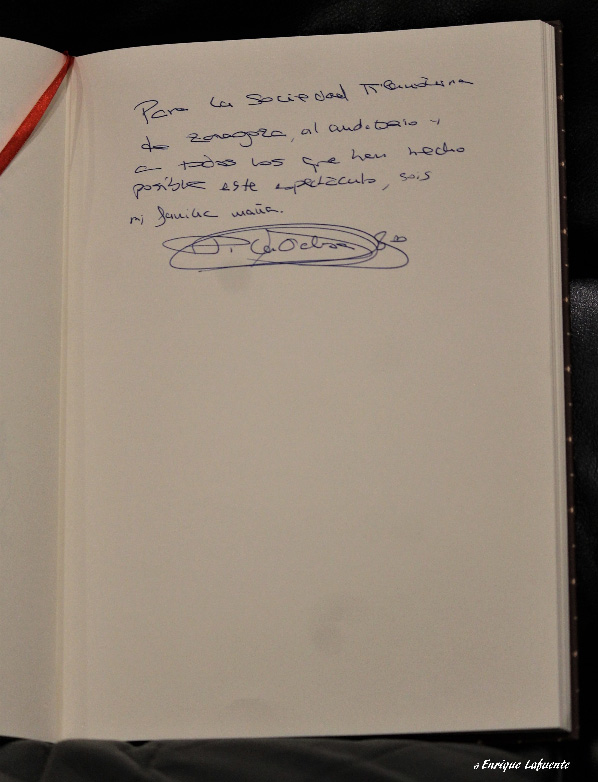 Para la Sociedad Tramoyista
de Zaragoza, al auditorio y
a todos los que han hecho
posible este espectáculo, sois
mi familia maña.
© Enrique Lafuente